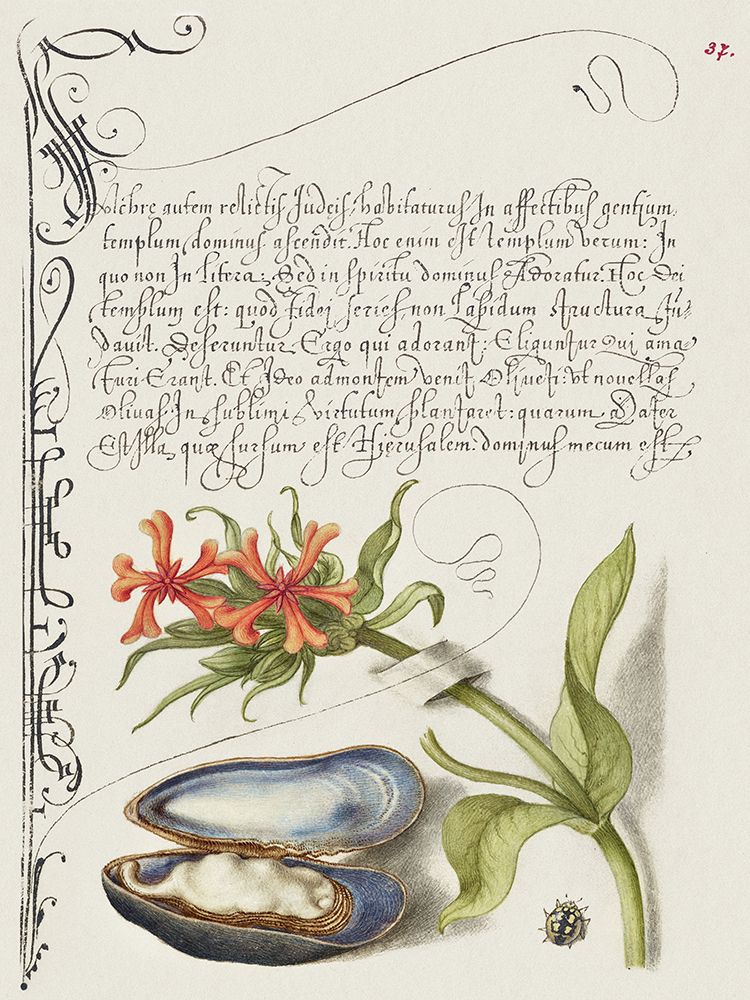 37.
autem relictis Judeis, habitaturus In affectibus gentium,
templum, dominus ascendit. Hoc enim est templum verum: In
quo non In litera: Sed in spiritu dominus Adoratur. Hoc Dei
templum est: quod fidei series, non lapidum structura fu-
davit. Deseruntur Ergo qui adorant: Eliguntur Qui ama-
turi Erant. Et Ideo ad montem venit Oliveti: ut novellas
Olivas In sublimi virtutum plantaret: quarum Mater
Est Illa quæ sursum est Hierusalem. dominus mecum est